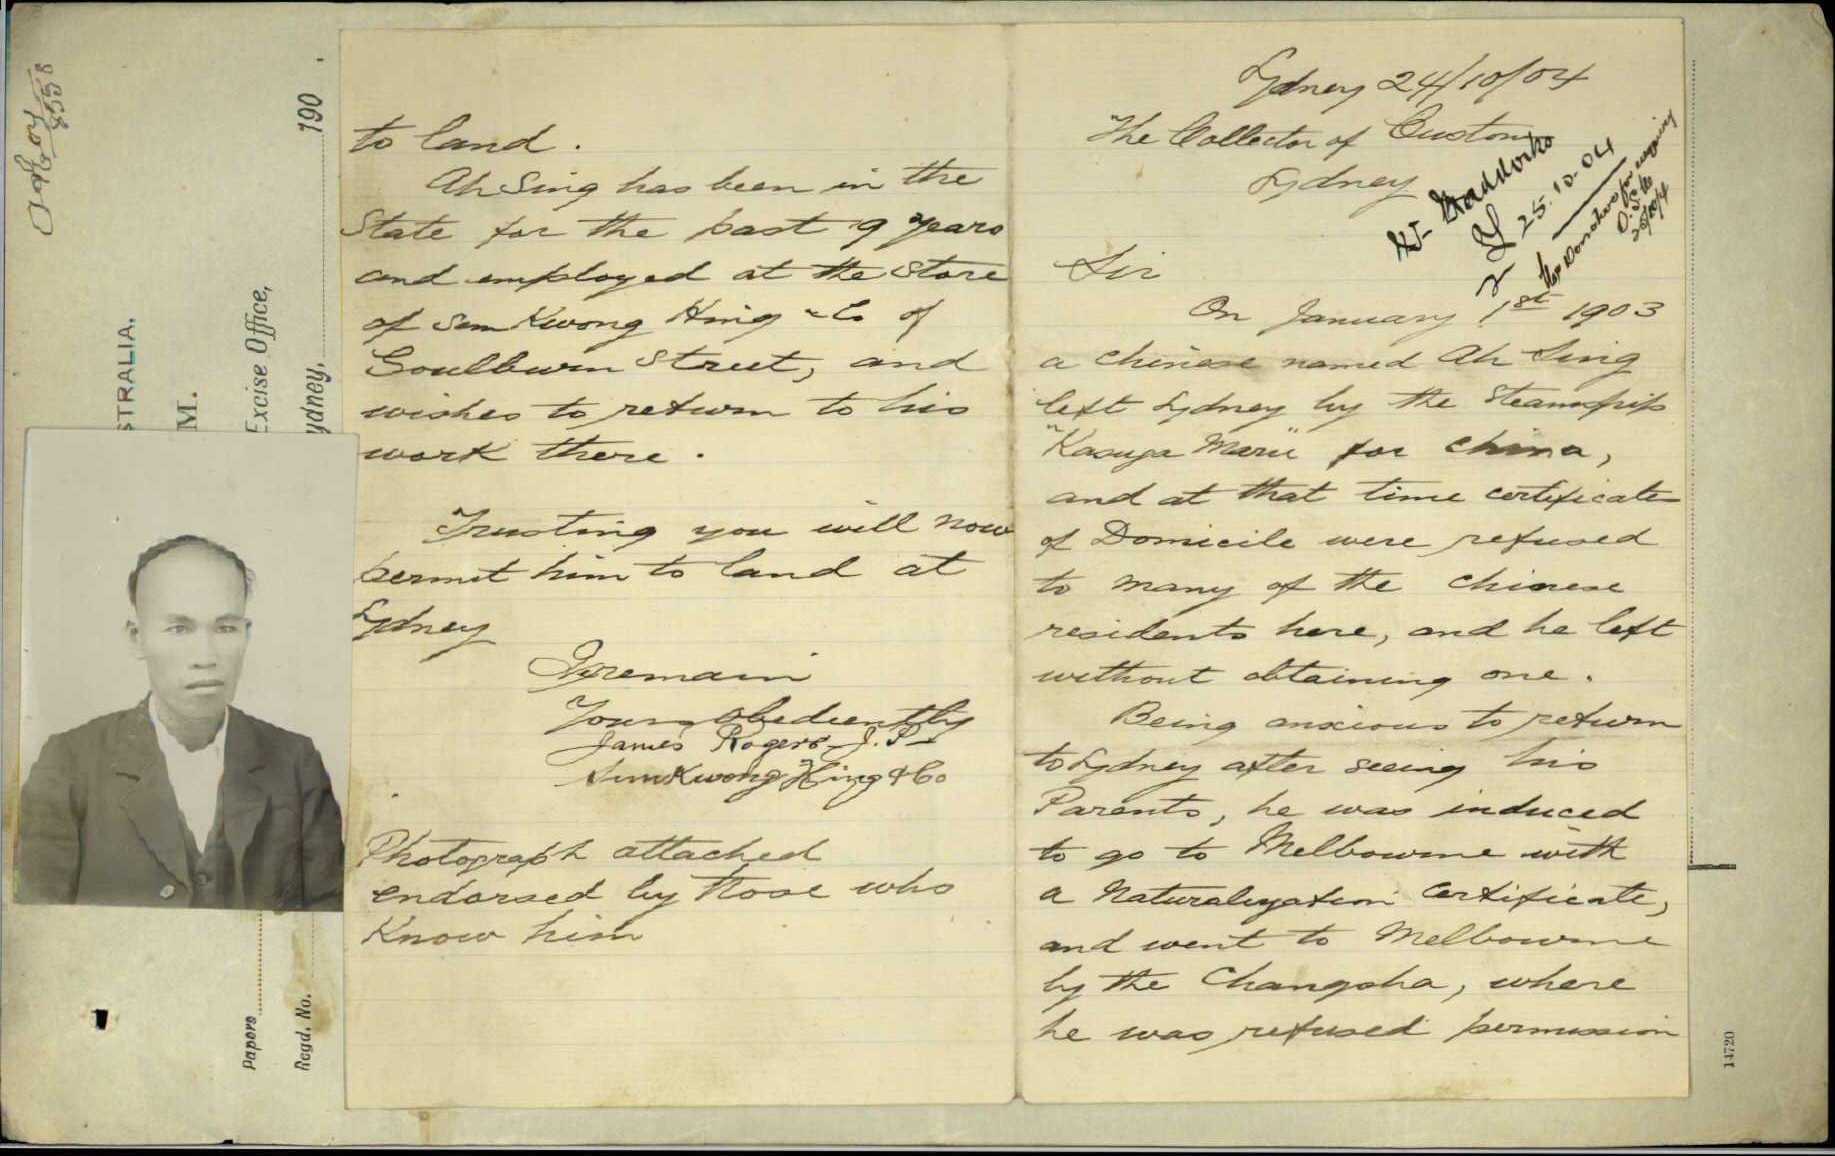 Sydney 24/10/04
The Collector of Customs
Sydney
25.10.04
Sir
On January 1st 1903
a chinese named Ah Sing
left Sydney by the Steamship
"Kasuga Maru" for China,
and at that time certificates
of Domicile were refused
to many of the Chinese
residents here, and he left
without obtaining one.
Being anxious to return
to Sydney after seeing his
Parents, he was induced
to go to Melbourne with
a Naturalization Certificate,
and went to Melbourne
by the Changsha, where
he was refused permission
to land.
Ah Sing has been in the
State for the past 9 years
and employed at the Store
of Sam Kwong Hing & Co of
Goulburn Street, and
wishes to return to his
work there.
Trusting you will now
permit him to land at
Sydney
I remain
Yours obediently
James Rogers J.P.
Sum Kwong Hing & Co
Photograph attached
endorsed by those who
Know him
STRALIA.
M.
Excise Office,
ydney, 190 .
Papers
Regd. No.
14720